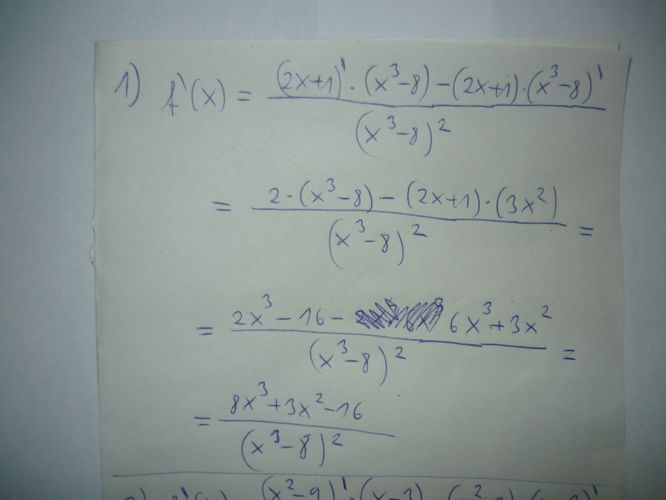 1) f'(x) = ((2x+1)' · (x³-8) - (2x+1) · (x³-8)') / (x³-8)²
= (2 · (x³-8) - (2x+1) · (3x²)) / (x³-8)² =
= (2x³ - 16 - 6x³ + 3x²) / (x³-8)² =
= (8x³ + 3x² - 16) / (x³-8)²